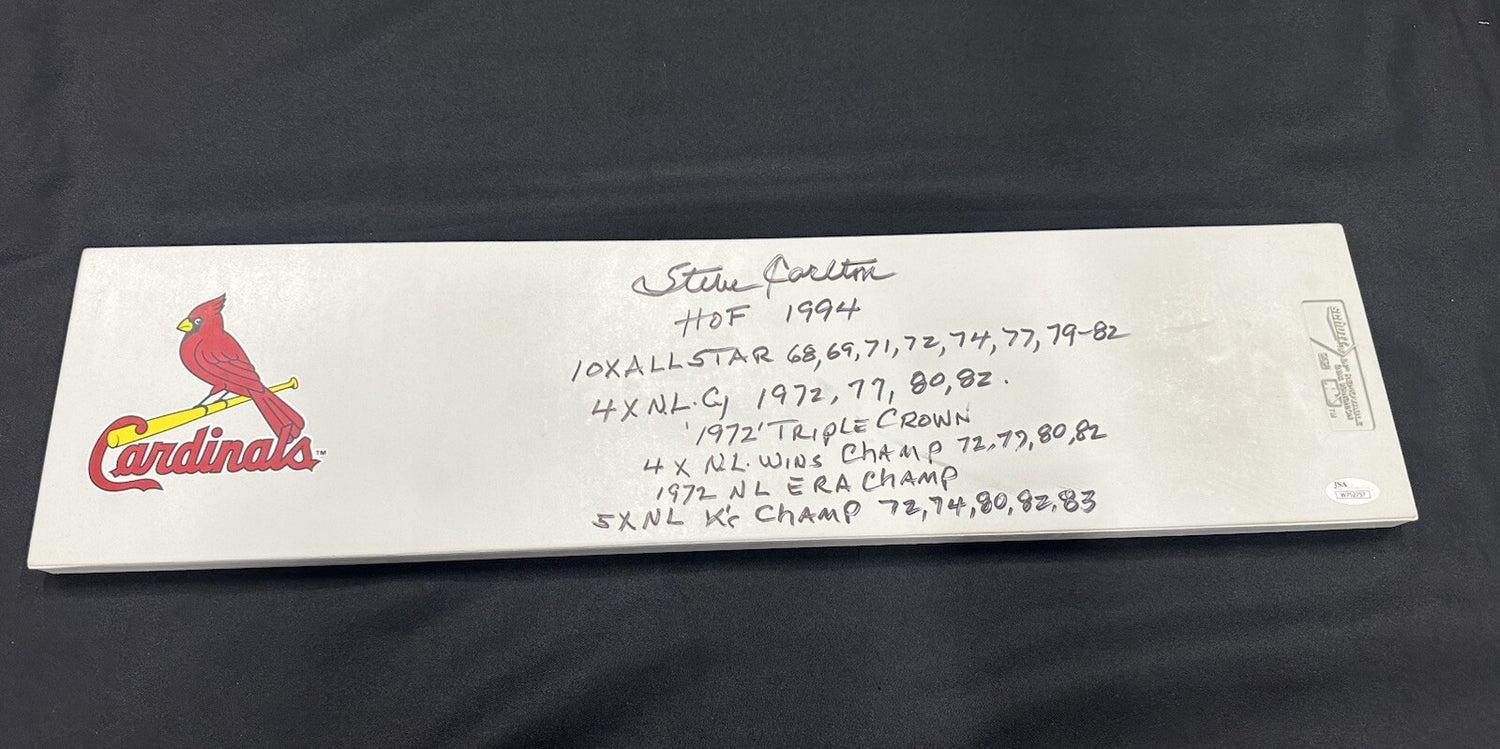 Cardinals™
Steve Carlton
HOF 1994
10X ALL STAR 68,69,71,72,74,77,79-82
4 X N.L. Cy 1972, 77, 80,82.
'1972' TRIPLE CROWN
4 X N.L. WINS CHAMP 72,77,80,82
1972 NL ERA CHAMP
5X NL K's CHAMP 72,74,80,82,83
JSA
W752757